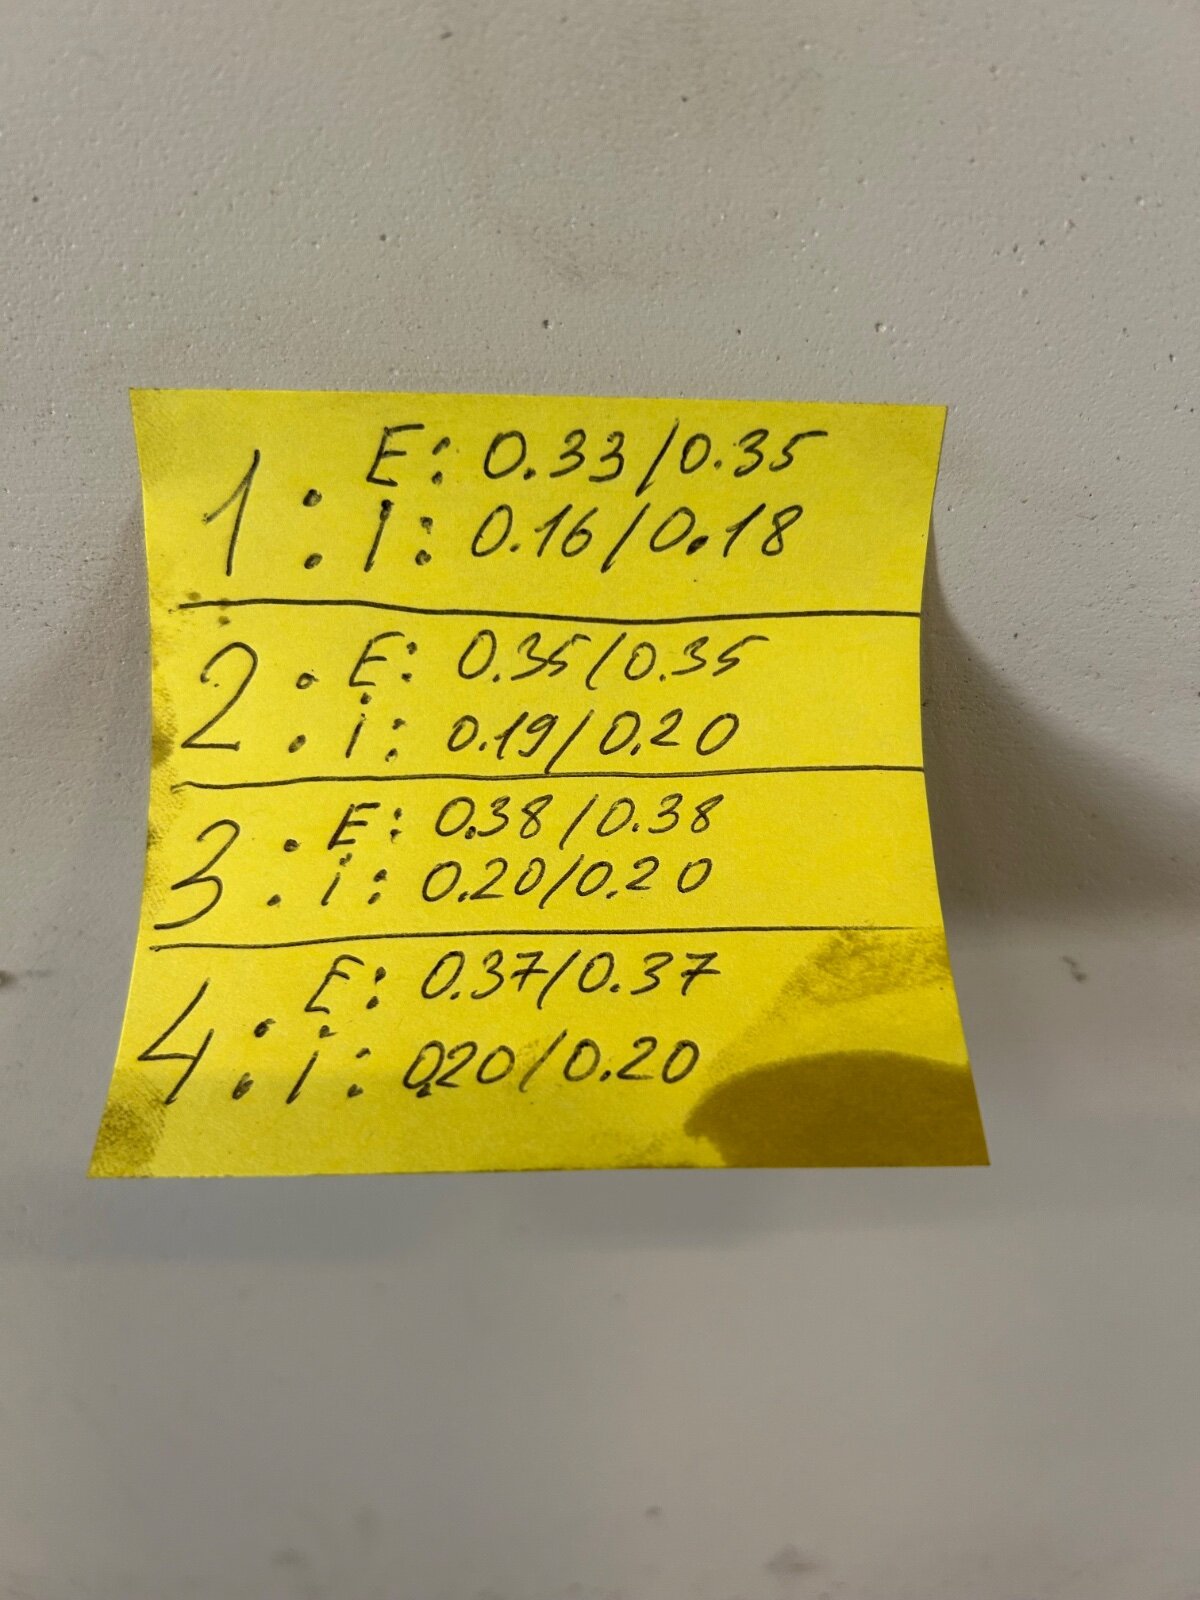 1: E: 0.33/0.35
I: 0.16/0.18
2: E: 0.35/0.35
i: 0.19/0.20
3: E: 0.38/0.38
i: 0.20/0.20
4: E: 0.37/0.37
i: 0.20/0.20